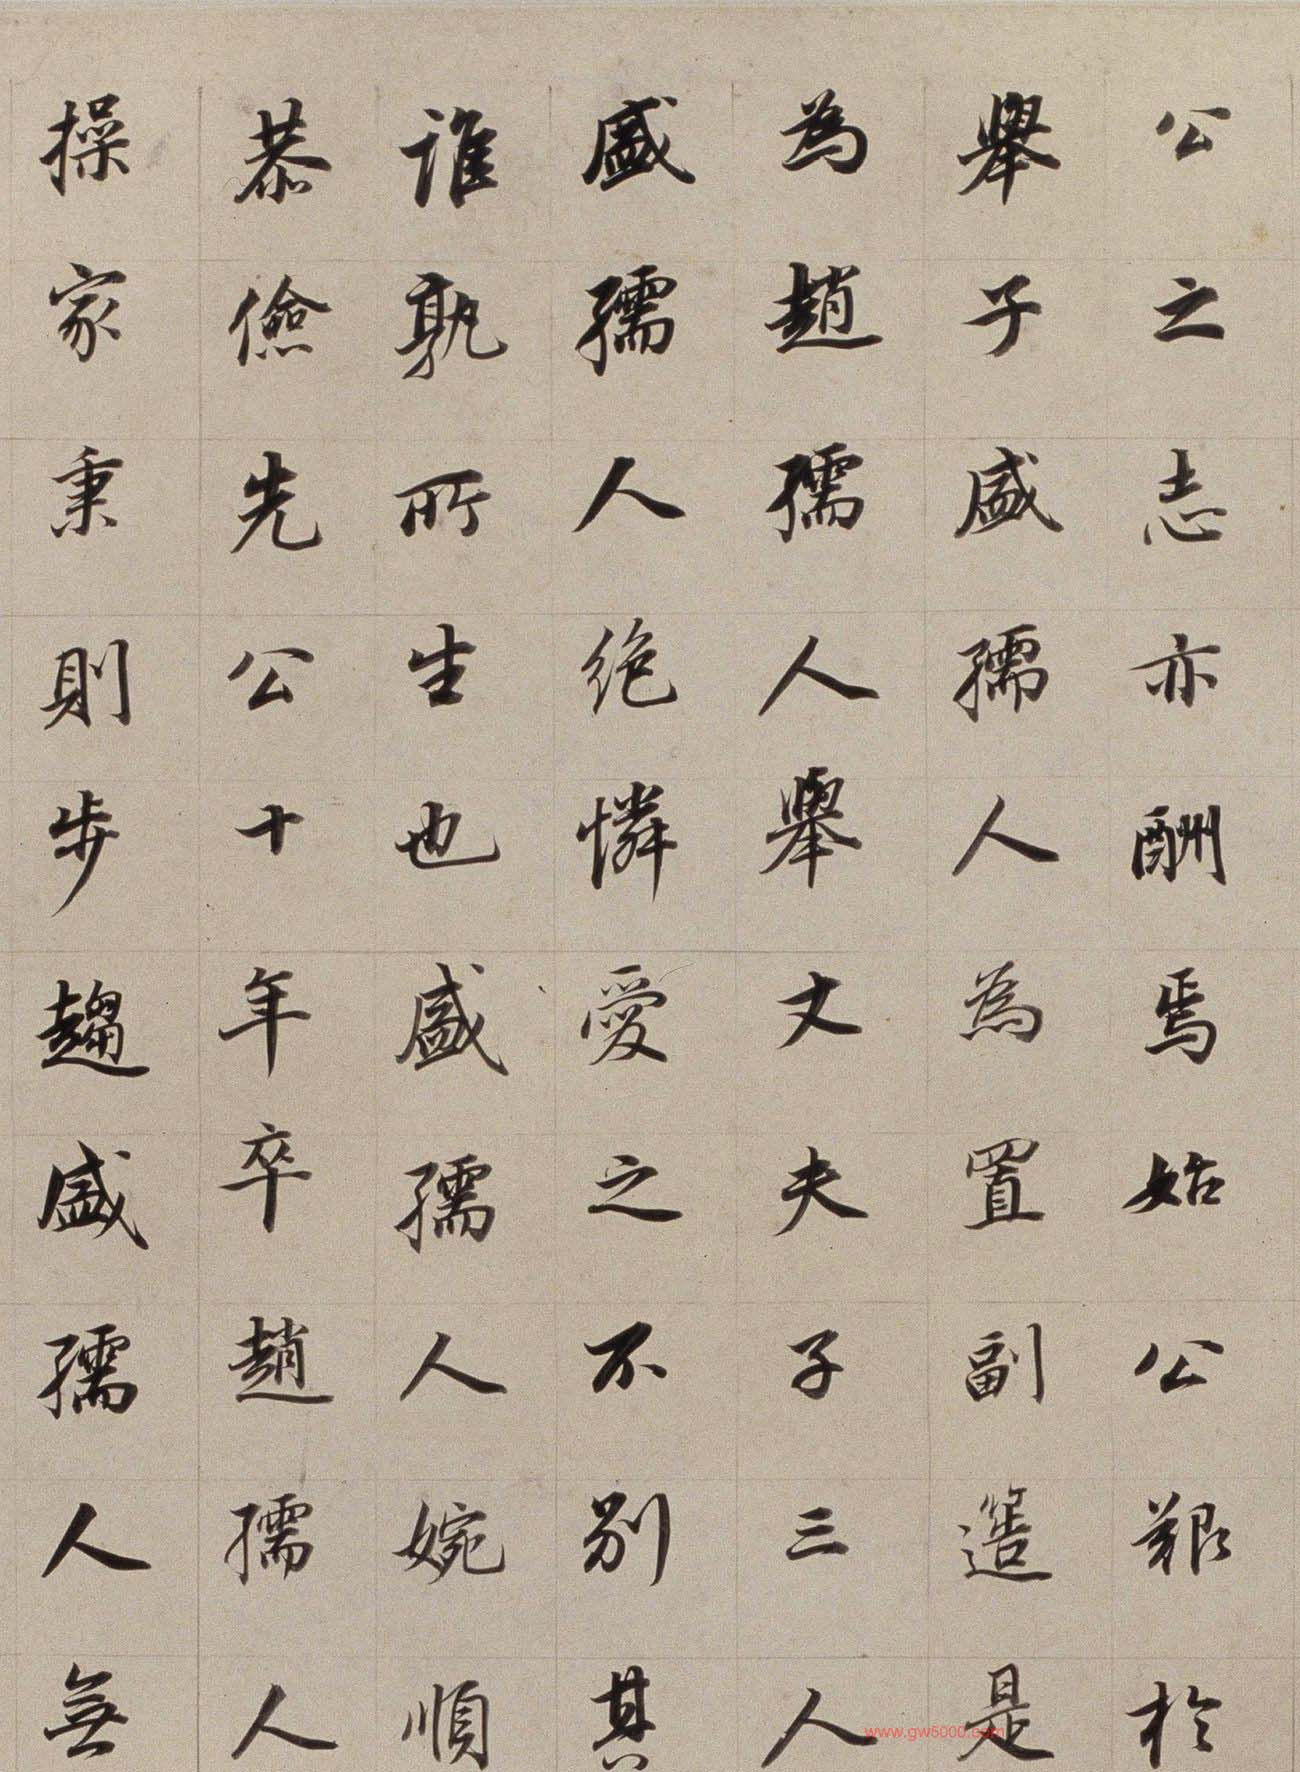 公之志亦酬焉始公艱於
舉子盛孺人為置副簉是
為趙孺人舉丈夫子三人
盛孺人絶憐愛之不別其
誰孰所生也盛孺人婉順
恭儉先公十年卒趙孺人
操家秉則步趨盛孺人無
www.gw5000.com